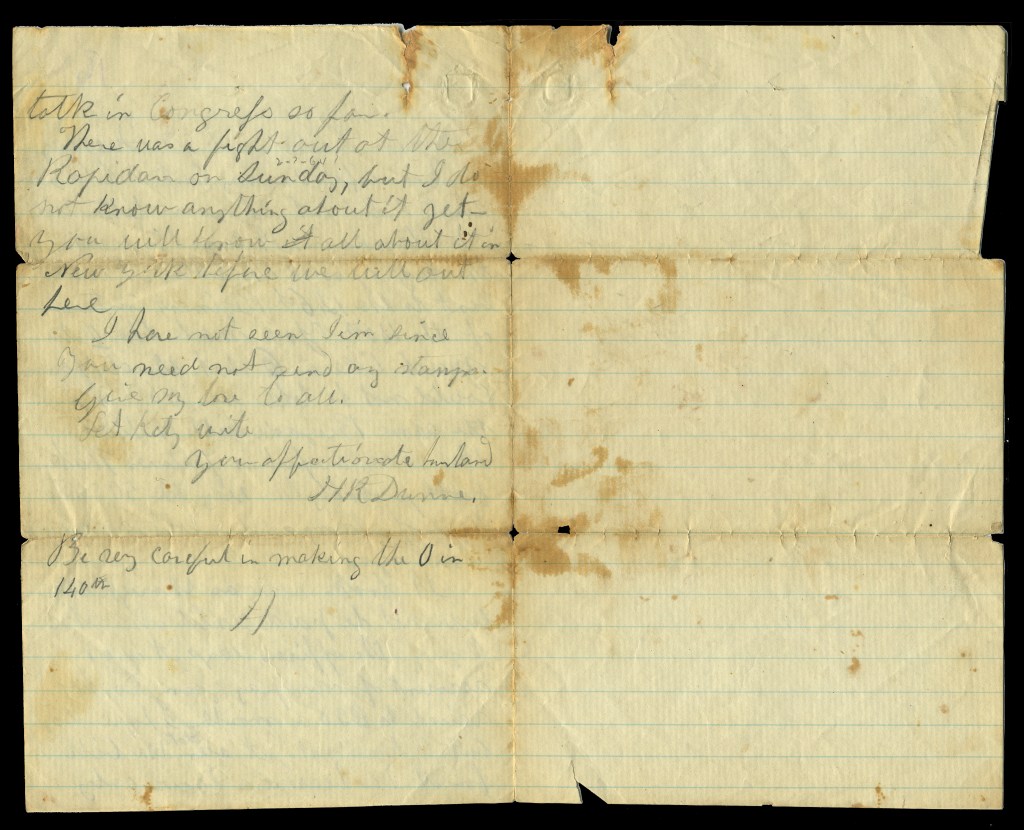 talk in Congress so far.
There was a fight out at the
Rapidan on Sunday, but I do
2-7-64
not know anything about it yet-
you will know it all about it in
New York before we will out
here
I have not seen Jim since
You need not send any stamps.
Give my love to all.
Let Katy write
Your affectionate husband
H R Dunne.
Be very careful in making the 0 in
140th
H